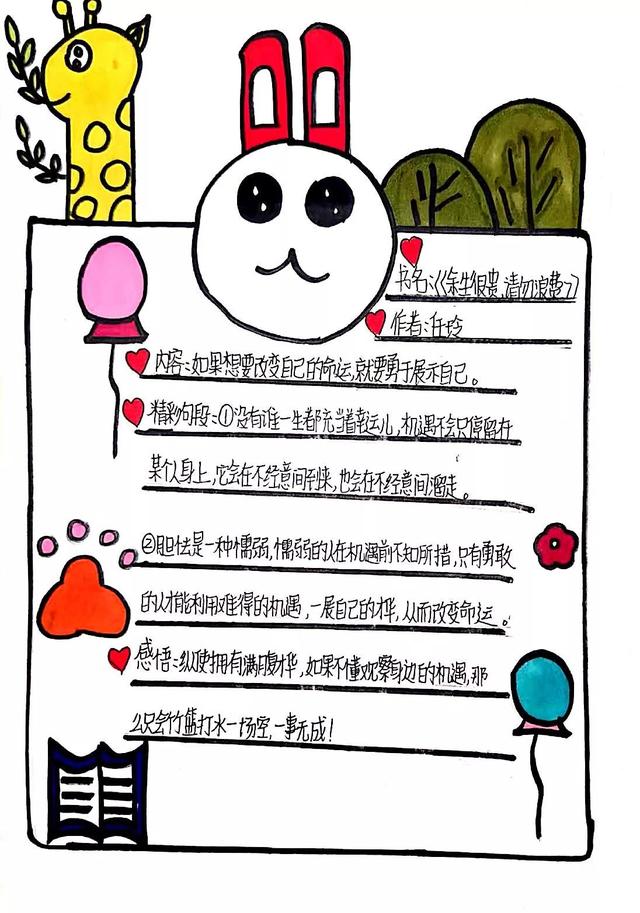 书名:《余生很贵,请勿浪费》
作者:任玲
内容:如果想要改变自己的命运,就要勇于展示自己。
精彩句段:①没有谁一生都充当着幸运儿,机遇不会只停留在
某个人身上,它会在不经意间到来,也会在不经意间溜走。
②胆怯是一种懦弱,懦弱的人在机遇前不知所措,只有勇敢
的人才能利用难得的机遇,一展自己的才华,从而改变命运。
感悟:纵使拥有满腹才华,如果不懂观察身边的机遇,那
么只会竹篮打水一场空,一事无成!